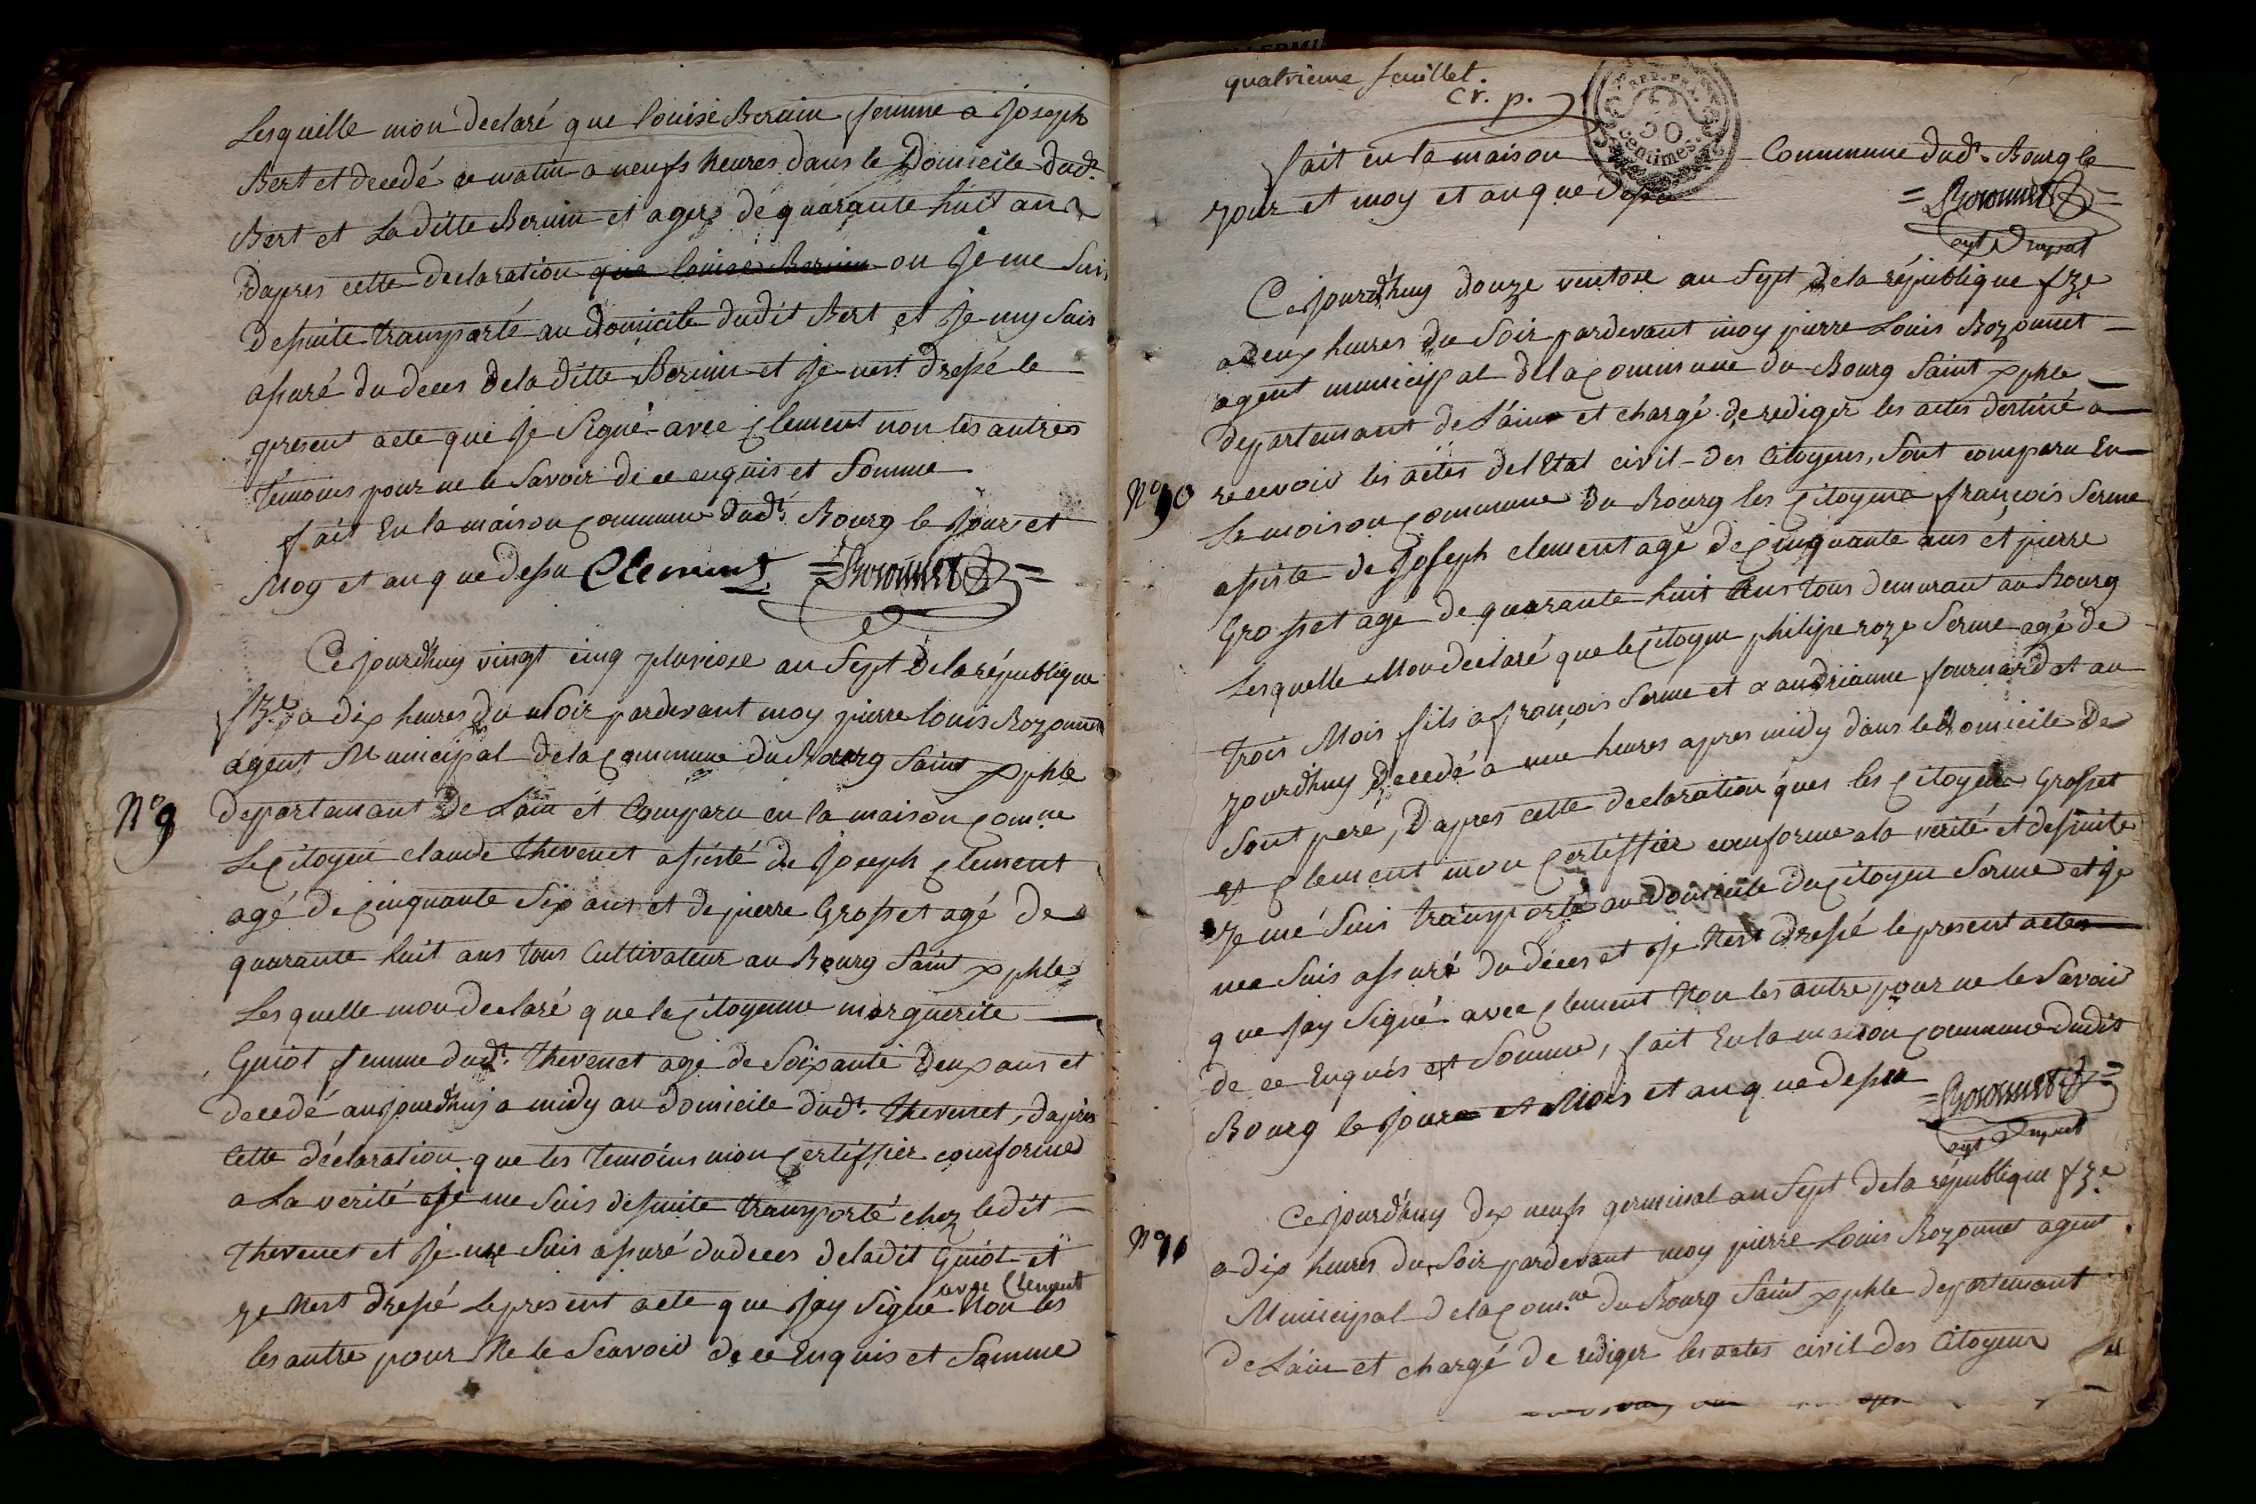 Lesquelle mon declaré que louise Bernin femme a joseph
Bert et decedé ce matin a neufs heures dans le Domicile dudt.
Bert et Laditte Bernin et agée de quarante huit ans
Dapres cette declaration que louise Bernin ou je me suis
desuite transporté au Domicile dudit Bert et je my suis
assuré du deces de laditte Bernin et je nest dressé le
present acte que je Signé avec Clement non les autres
témoins pour ne le Savoir de ce enquis et Somme
fait En la maison Commune dudt. Bourg le jour et
Moy et an que dessu Clement =Bozonnet=
Ce jourdhuy vingt cinq pluviose an Sept de la république
fze a dix heures du Soir pardevant moy pierre louis Bozonnet
agent Municipal de la Commune du Bourg Saint xphle
N° 9 departemant De Lain ét Comparu en la maison Comne
Le Citoyen claude thevenet assisté de Joseph Clement
agé de Cinquante Six ans et de pierre Grosset agé De
quarante huit ans tous Cultivateur au Bourg Saint xphle
Lesquelle mon declaré que la Citoyenne marguerite
Guiot femme dudt. thevenet age de Soixante Deux ans et
decedé aujourdhuy a midy au domicile dudt. thevenet, dapres
Cette déclaration que les temoins mon Certiffier conforme
a La verité je me Suis desuite transporté chez ledit
thevenet et je me Suis assuré dudeces deladit Guiot et
avec Clement
je Nest dressé Le present acte que jay Signe Non les
les autre pour Ne le Scavoir de ce Enquis et Somme
quatrieme feuillet.
cr. p.
REP. FRA.
50
centimes.
fait en la maison Commune dudt. Bourg le
jour et moy et an que dessu =Bozonnet=
agt
Ce jourdhuy douze ventose an Sept de la république fze
a deux heures du Soir pardevant moy pierre Louis Bozonnet
agent municipal de la Commune du Bourg Saint xphle
departemant de Láin et chargé de rediger les actes destiné a
N° 10 recevoir les actes de l Etat civil des Citoyens, Sont comparu En
La maison Commune Du Bourg les Citoyens françois Serme
assiste de Joseph clement agé de Cinquante ans et pierre
Grosset age de quarante huit Ans tous demurant au Bourg
Lesquelle Mon declaré que le Citoyen philipe roze Serme agé de
trois Mois fils a françois Serme et a andrianne fournard et au
jourdhuy decedé a une heures apres midy dans le domicile de
Sont pere, Dapres cette declaration ques les Citoyen Grosset
et Clement mon Certiffier conforme a la verité et desuite
Je mé Suis transporté au Domicile du Citoyen Serme et je
mee Suis assuré du deces et je Nest dressé le present acte
que jay Signé avec Clement Non les autre pour ne le Savoir
de ce Enquis et Somme, fait En la maison Commune dudit
Bourg le jour et Mois et an que dessu =Bozonnet=
agt
Ce jourdhuy dix neufs germinal an Sept de la république fze
N° 11 a dix heures du Soir pardevant moy pierre Louis Bozonnet agent
Municipal de la Comne du Bourg Saint xphle departemant
de Láin et chargé De rédiger les actes civil des Citoyens